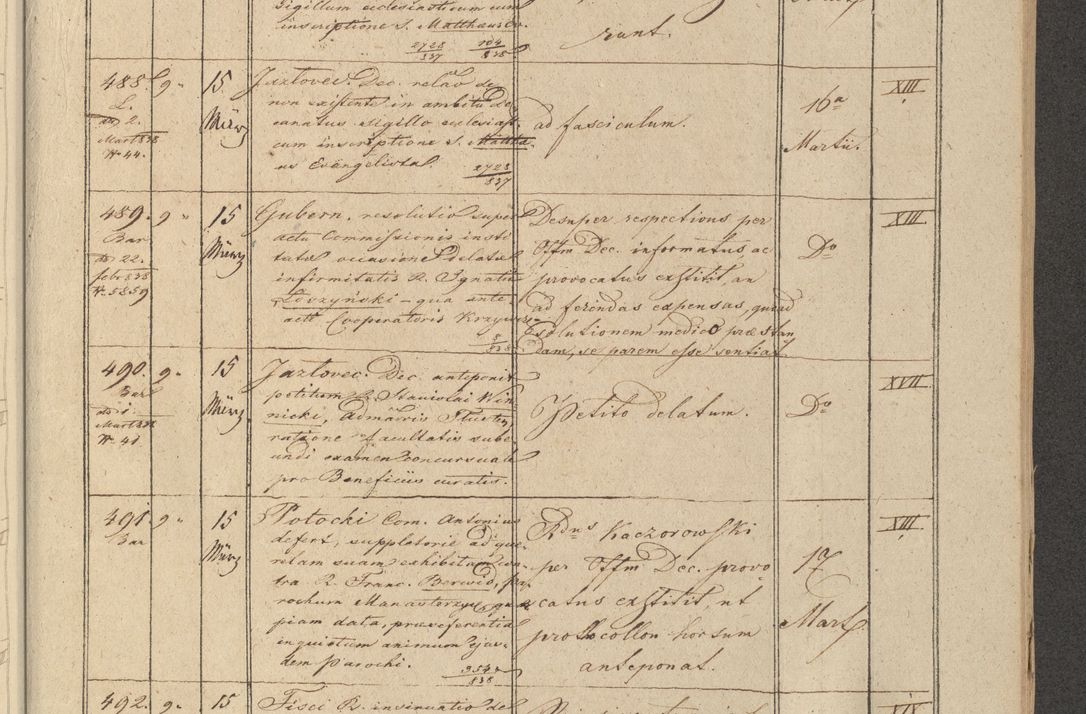 Sigillum ecclesiasticum cum
inscriptione S. Matthaeus Ev.
2728/837 104/838
runt.
488. 9.
L.
dto 2.
Mart 838
N 44.
15
März
Jazlovec. Dec. relatio de
non existente in ambitu De
canatus Sigillo ecclesiast.
cum inscriptione S. Matthae
us Evangelista.
2728/837
ad fasciculum.
16a
Martii.
XIII
489. 9
Bar
dto 22.
febr 838
N. 5859
15
März
Gubern. resolutio super
actu Commissionis insti
tutae occasione delatae
infirmitatis R. Ignatii
Łoszyński – qua ante
acti Cooperatoris
Desuper respections, per
Offm Dec. informatus, ac
provocatus exstitit, an
ad ferendas expensas, quoad
solutionem medico praestan
dam, se parem esse sentiat.
Do
XIII
490. 9.
Bar
dto 1.
Mart 838
N 41
15
März
Jazlovec. Dec. anteponit
petitum R. Stanislai Win
nicki, Admäris
ratione facultatis sube
undi examen concursuale
pro Beneficiis curatis.
Petito delatum.
Do
XVII
491. 9
Bar
15
März
Potocki Com. Antonius
defert, suppletorie ad que-
relam suam exhibitam con
tra R. Franc. Berwid, pa
rochum Manasterzys. quae
piam data, praeseferentia
inquietum animum ejus-
dem Parochi.
954/838
Rdus Kaczorowski
per Offm Dec. provo-
catus exstitit, ut
prothocollon horsum
anteponat.
17
Mart.
XIII
492. 9.
15
Fisci R. insinuatio de
XIV